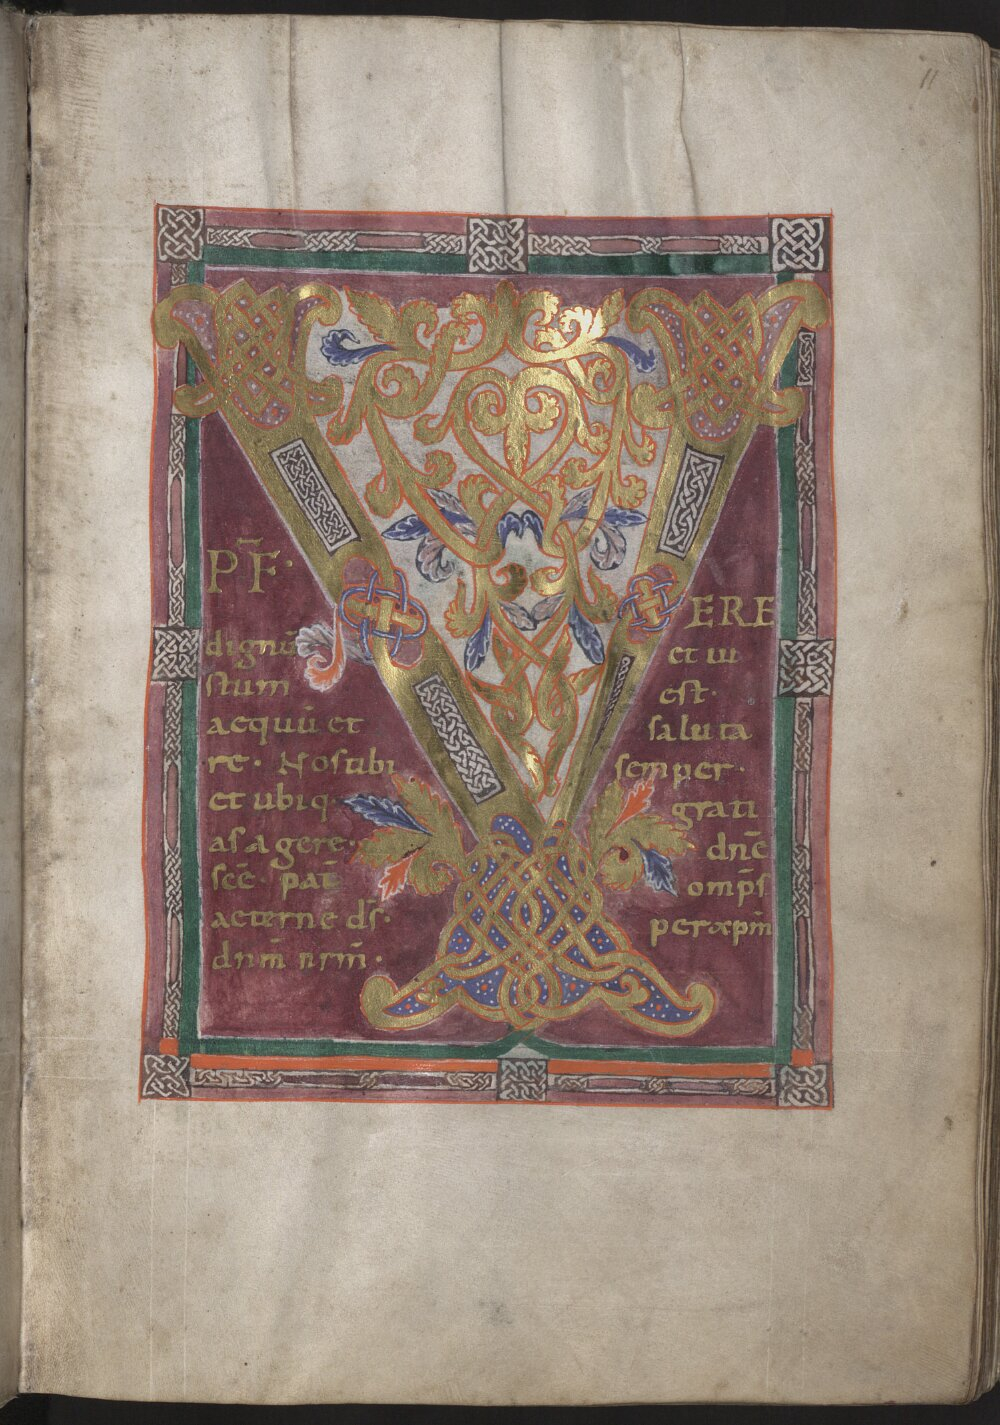 11
V
P̄F· ERE
dignū et iu
stum est·
aequū et saluta
re· Nos tibi semper·
et ubiq· grati
as agere· dn̄e
sc̄e· pat̄ omp̄s
aeterne dſ̄· per xp̄m
dnm̄ nr̄m̄·